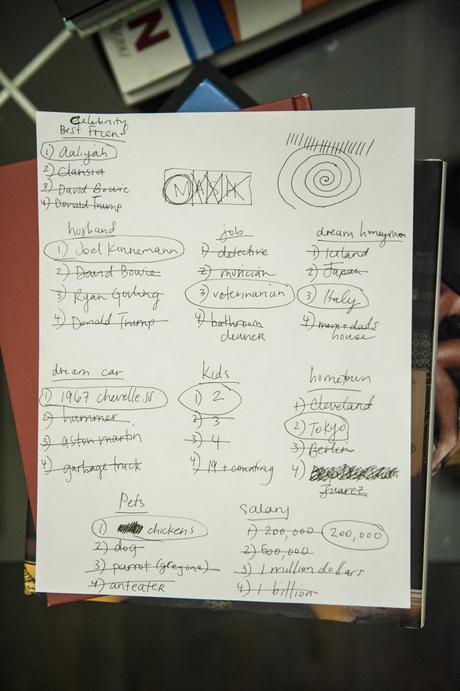 N
Celebrity
Best Friend
1) Aaliyah
2) Clarissa
3) David Bowie
4) Donald Trump
MASH
husband
1) Joel Kinnemann
2) David Bowie
3) Ryan Gosling
4) Donald Trump
job
1) detective
2) musician
3) veterinarian
4) bathroom
cleaner
dream honeymoon
1) Iceland
2) Japan
3) Italy
4) mom + dad's
house
dream car
1) 1967 chevelle ss
2) hummer
3) aston martin
4) garbage truck
Kids
1) 2
2) 3
3) 4
4) 19 + counting
hometown
1) Cleveland
2) Tokyo
3) Berlin
4)
Juarez
Pets
1) chickens
2) dog
3) parrot (gregone)
4) anteater
Salary
1) 200,000 200,000
2) 500,000
3) 1 million dollars
4) 1 billion